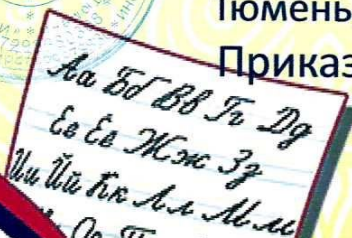 Тюмень
Приказ
Аа Бб Вв Гг Дд
Ее Ее Жж Зз
Ии Йй Кк Лл Мм